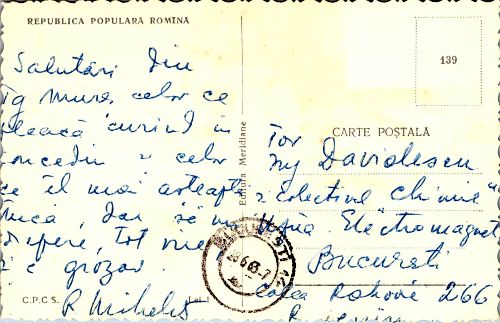 REPUBLICA POPULARĂ ROMÎNĂ
139
Salutări din
Tg Mureș, celor ce
pleacă curînd în
concediu și celor
ce îl mai așteaptă
încă, dar să nu
dispere, tot vine
și e grozav.
R Mihelis
C.P.C S.
Lei 1
Editura Meridiane
CARTE POȘTALĂ
Tov
Ing Davidescu
Colectivul Chimie"
Electromagnet
București
Calea Rahovei 266
BUCUREȘTI